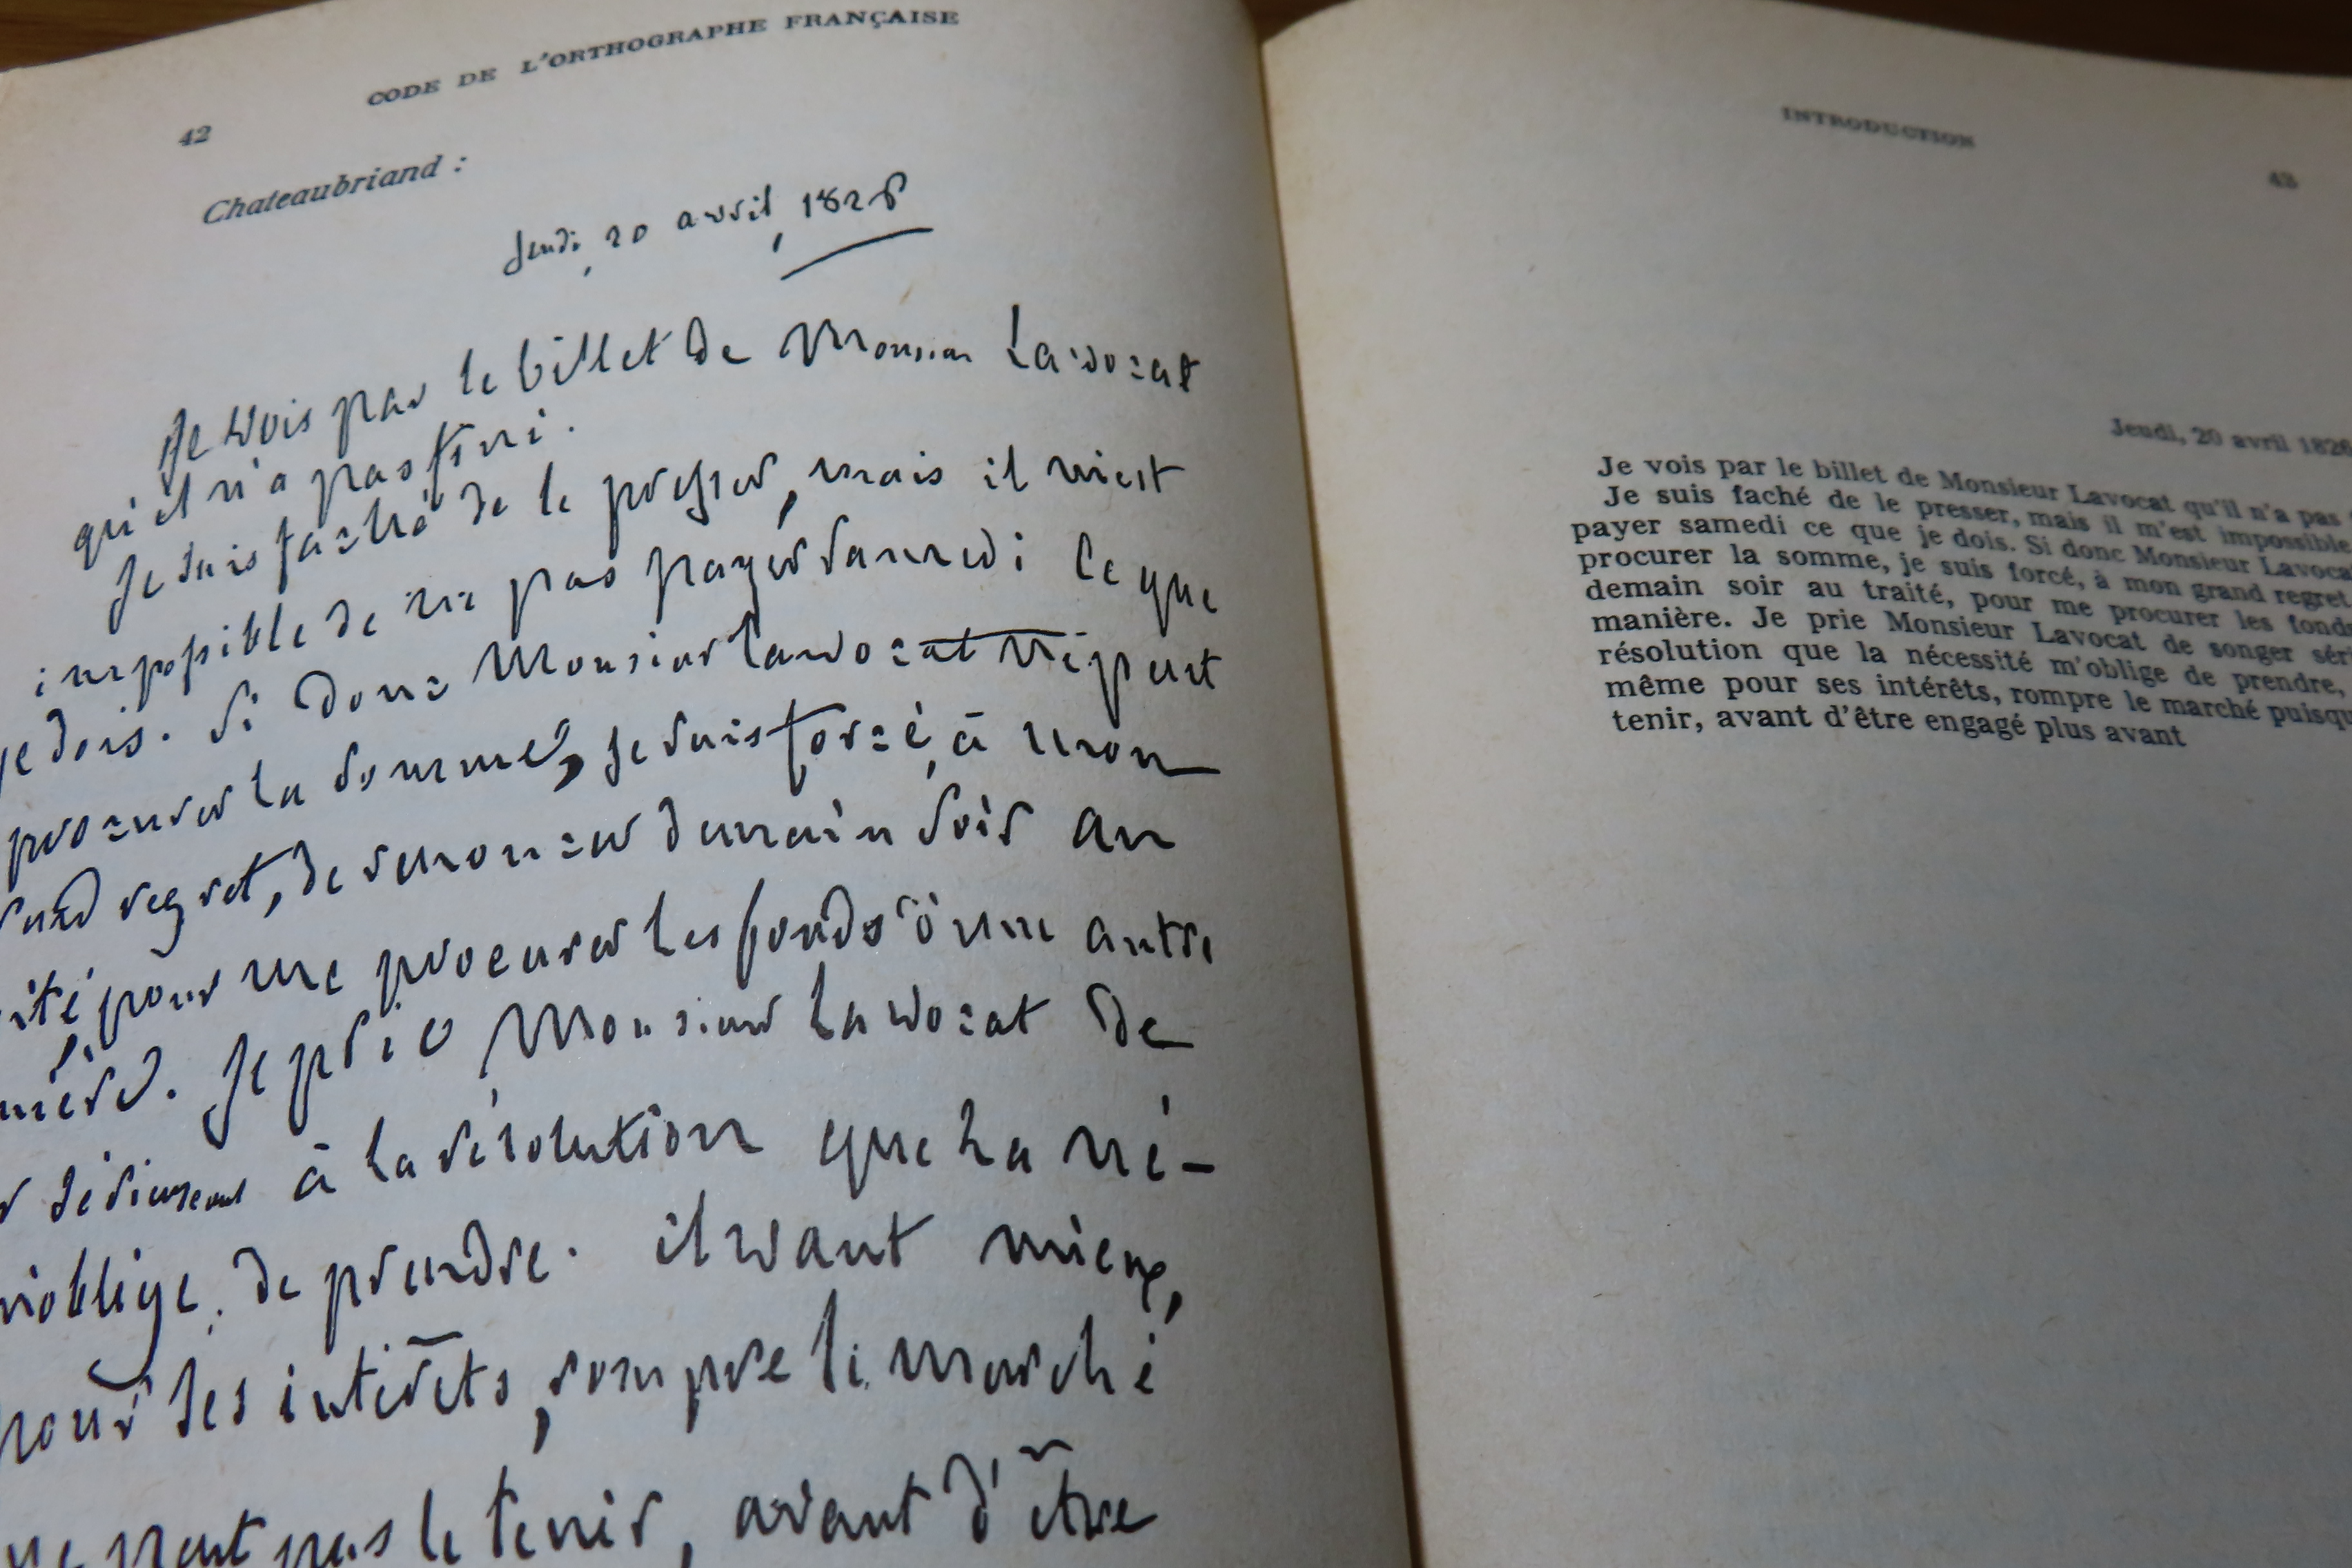 42
CODE DE L'ORTHOGRAPHE FRANÇAISE
Chateaubriand :
Jeudi, 20 avril, 1826
Je vois par le billet de Monsieur Lavocat
qu'il n'a pas fini.
Je suis faché de le presser, mais il m'est
impossible de ne pas payer samedi ce que
je dois. Si donc Monsieur Lavocat ne peut
procurer la somme, je suis forcé, à mon
regret, de renoncer demain soir au
pour me procurer les fonds d'une autre
Je prie Monsieur Lavocat de
sérieusement à la résolution que la né-
m'oblige de prendre. il vaut mieux,
pour ses intérêts, rompre le marché
ne peut pas le tenir, avant d'être
INTRODUCTION
43
Jeudi, 20 avril 1826
Je vois par le billet de Monsieur Lavocat qu'il n'a pas
Je suis faché de le presser, mais il m'est impossible
payer samedi ce que je dois. Si donc Monsieur Lavocat
procurer la somme, je suis forcé, à mon grand regret,
demain soir au traité, pour me procurer les fonds
manière. Je prie Monsieur Lavocat de songer
résolution que la nécessité m'oblige de prendre,
même pour ses intérêts, rompre le marché
tenir, avant d'être engagé plus avant